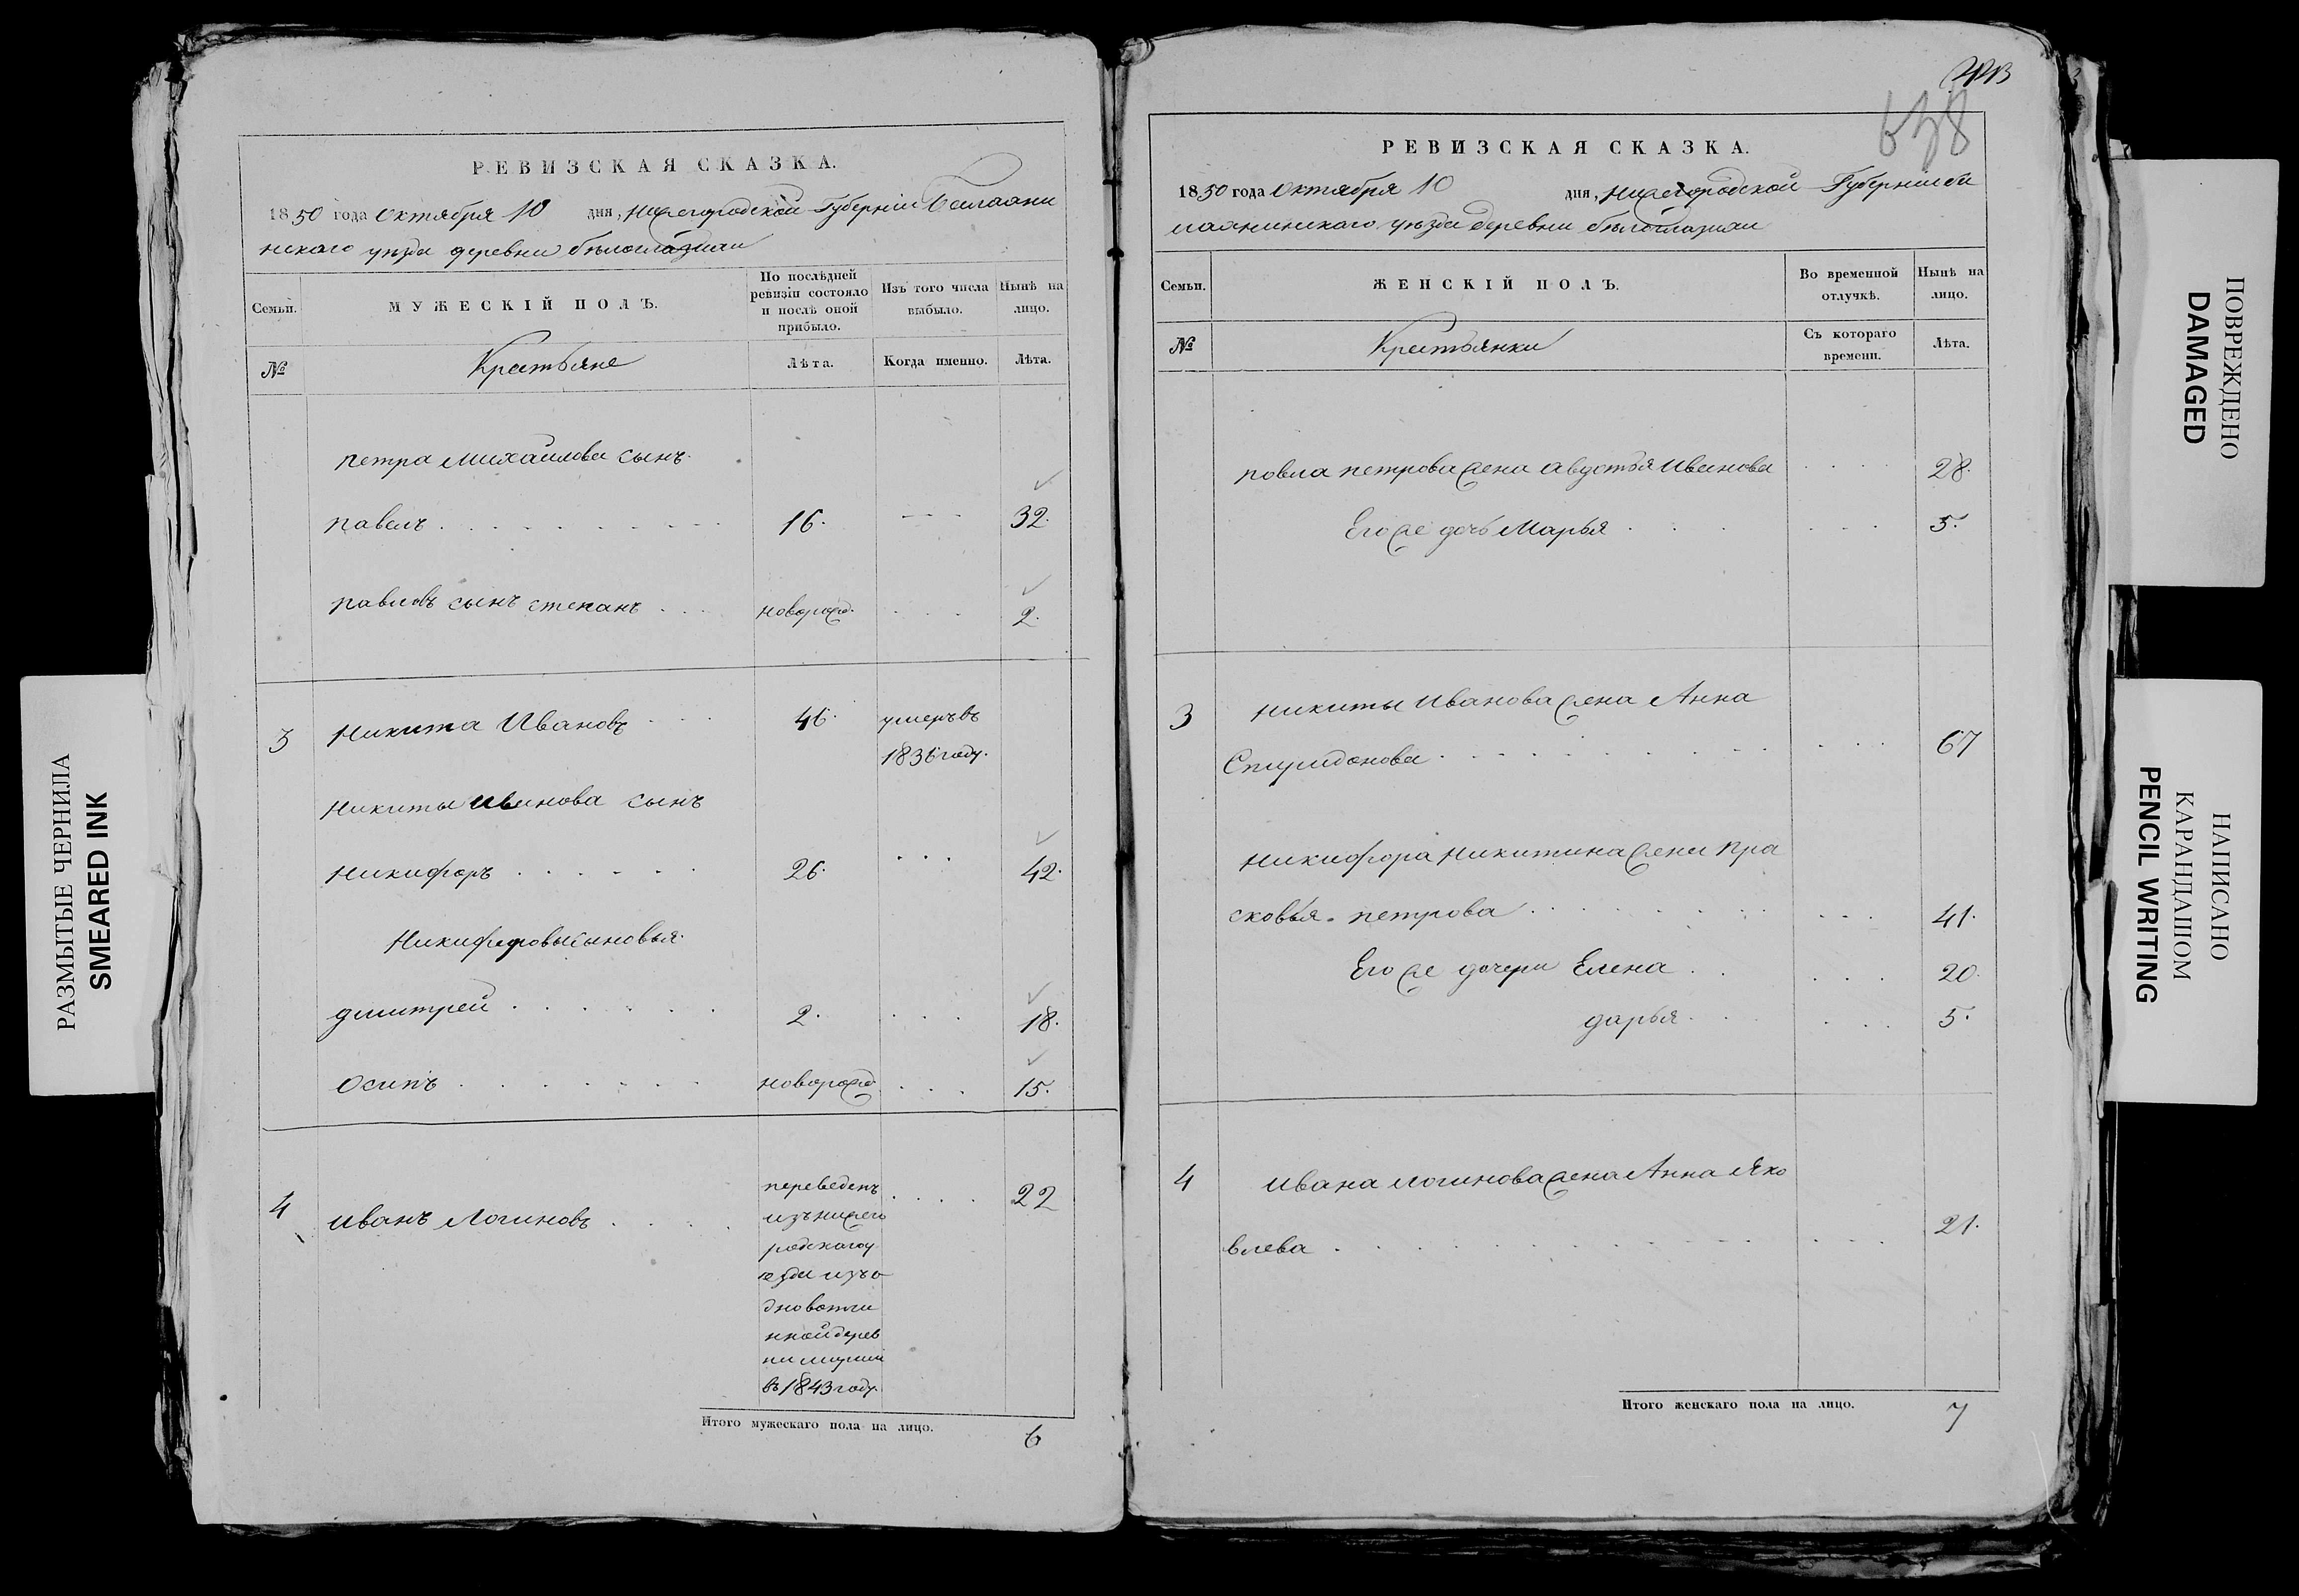 РЕВИЗСКАЯ СКАЗКА.
1850 года Октября 10 дня, Нижегородской Губернии
нскаго уезда деревни
Семьи.
МУЖЕСКІЙ ПОЛЪ.
По послѣдней
ревизіи состояло
и послѣ оной
прибыло.
Изъ того числа
выбыло.
Нынѣ на
лицо.
№
Крестьяне
Лѣта.
Когда именно.
Лѣта.
петра Михайлова сынъ
павелъ 16. 32.
павловъ сынъ степанъ новорожд. 2.
3 Никита Ивановъ 46. умеръ въ
1836 году.
Никиты Иванова сынъ
Никифоръ 26. 42.
Никифоровы сыновья
дмитрей 2. 18.
Осипъ новорожд 15.
4 Иванъ Логиновъ 22
переведенъ
изъ нижего
родскаго у
езда изъ о
дновотчи
нной дерев
ни
въ 1843 году.
Итого мужескаго пола на лицо. 6
638
РЕВИЗСКАЯ СКАЗКА.
1850 года Октября 10 дня, Нижегородской Губернии
уезда деревни
Семьи.
ЖЕНСКІЙ ПОЛЪ.
Во временной
отлучкѣ.
Нынѣ на
лицо.
№
Крестьянки
Съ котораго
времени.
Лѣта.
повла петрова жена Авдотья Иванова 28.
Его же дочь Марья 5.
3 Никиты Иванова жена Анна
Спиридонова 67
Никифора Никитина жена Пра
сковья петрова 41.
Его же дочери Елена 20.
дарья 5.
4 Ивана Логинова жена Анна Яко
влева 21.
Итого женскаго пола на лицо. 7
РАЗМЫТЫЕ ЧЕРНИЛА
SMEARED INK
ПОВРЕЖДЕНО
DAMAGED
НАПИСАНО
КАРАНДАШОМ
PENCIL WRITING